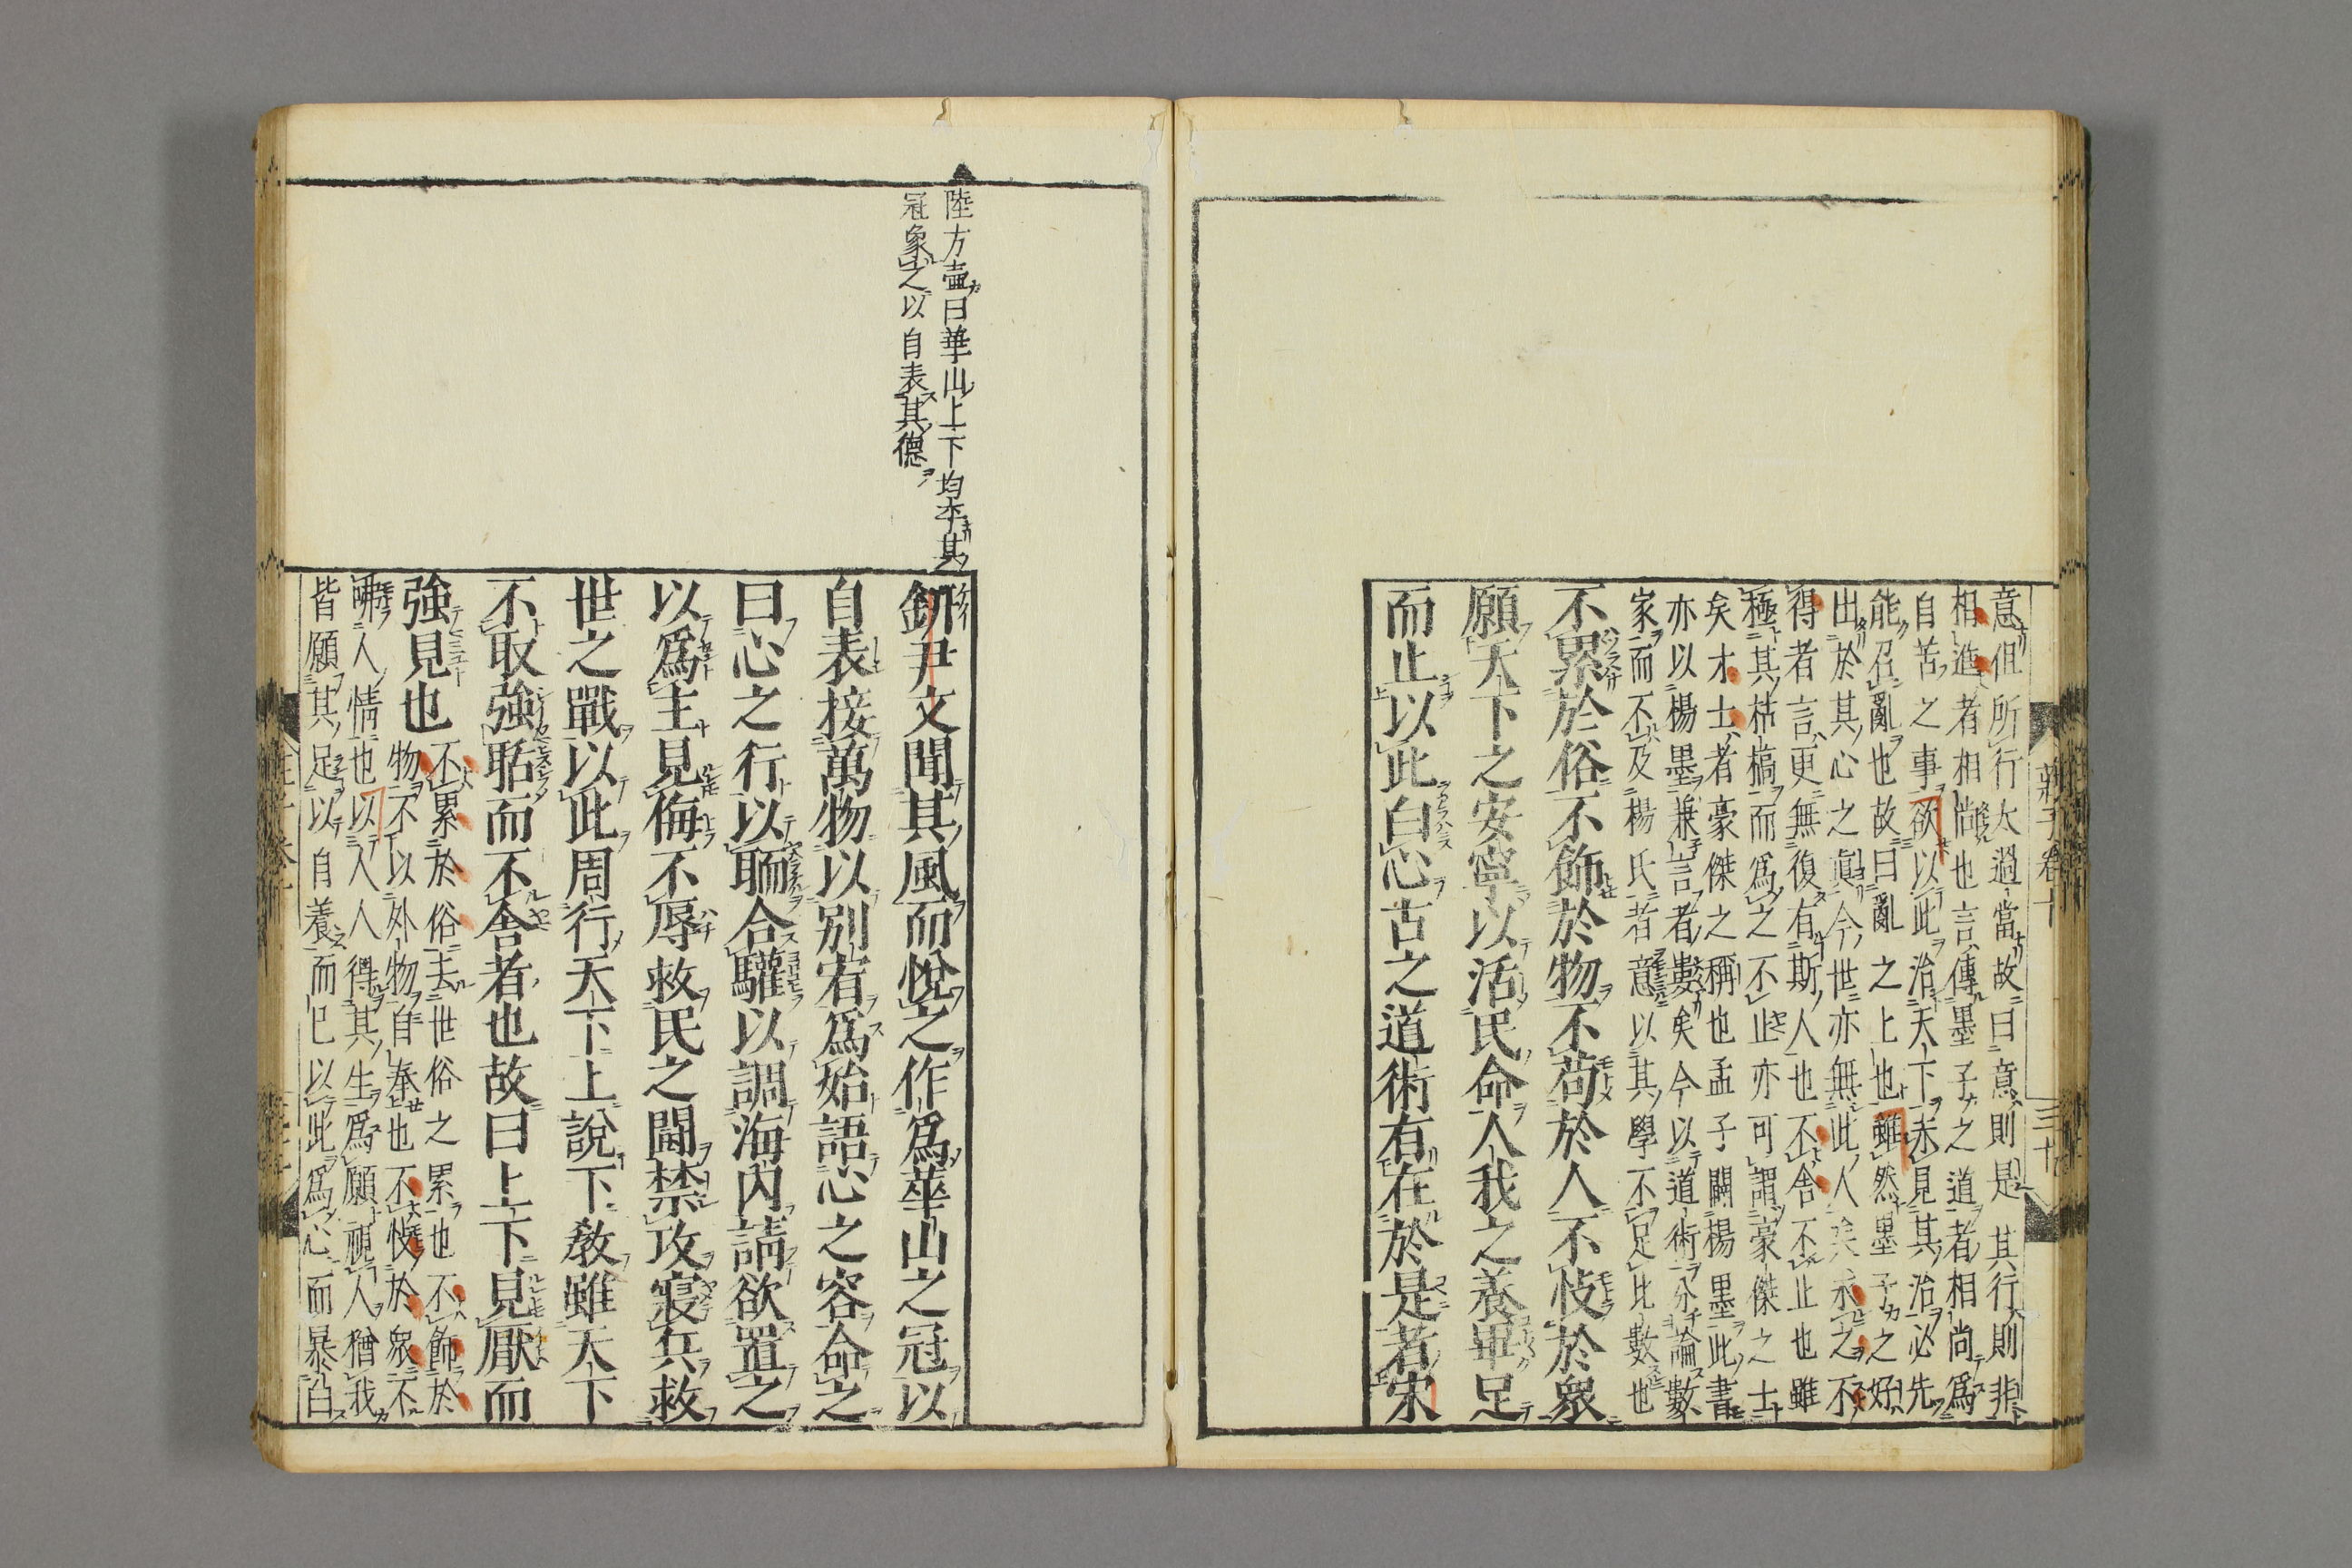 莊子卷十
三十
意但所行大過當故曰意則是其行則非
相進者相尚也言傳墨子之道者相尚爲
自苦之事欲以此治天下未見其治必先
能召亂也故曰亂之上也雖然墨子之好
出於其心之眞今世亦無此人矣求之不
得者言更無復有斯人也不舍不止也雖
極其枯槁而爲之不止亦可謂豪傑之士
矣才士者豪傑之稱也孟子闢楊墨此書
亦以楊墨兼言者數矣今以道術分論數
家而不及楊氏者意以其學不足比數也
不累於俗不飾於物不苟於人不忮於衆
願天下之安寧以活民命人我之養畢足
而止以此白心古之道術有在於是者宋
陸方壷曰華山上下均平其
冠象之以自表其德
鈃尹文聞其風而悅之作爲華山之冠以
自表接萬物以別宥爲始語心之容命之
曰心之行以聏合驩以調海內請欲置之
以爲主見侮不辱救民之鬪禁攻寢兵救
世之戰以此周行天下上說下敎雖天下
不取強聒而不舍者也故曰上下見厭而
強見也
不累於俗去世俗之累也不飾於
物不以外物自奉也不忮於衆不
咈人情也以人人得其生爲願視人猶我
皆願其足以自養而已以此爲心而暴白